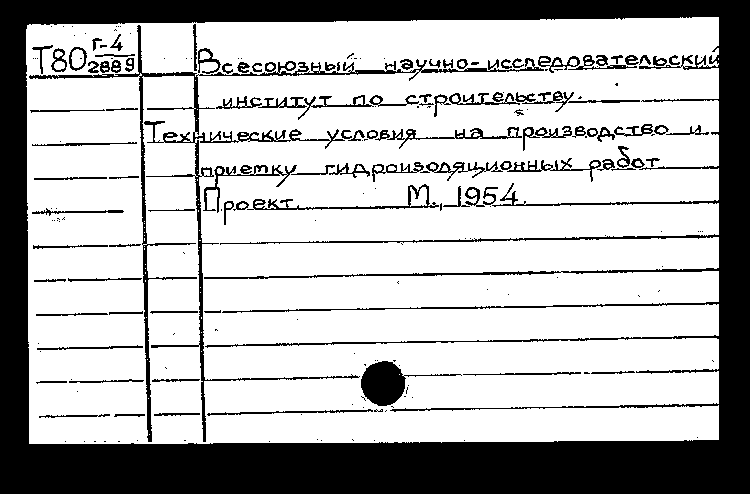 Т80 г-4/2889 Всесоюзный научно-исследовательский
институт по строительству.
Технические условия на производство и
приемку гидроизоляционных работ
Проект. М., 1954.